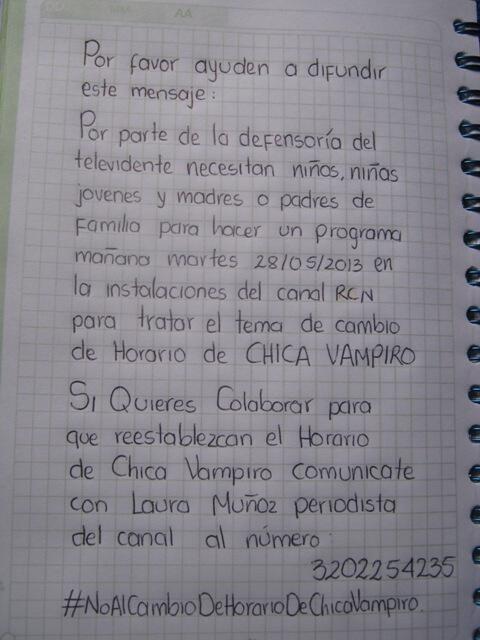 AA
Por favor ayuden a difundir
este mensaje:
Por parte de la defensoría del
televidente necesitan niños, niñas
jovenes y madres o padres de
familia para hacer un programa
mañana martes 28/05/2013 en
la instalaciones del canal RCN
para tratar el tema de cambio
de Horario de CHICA VAMPIRO
Si Quieres Colaborar para
que reestablezcan el Horario
de Chica Vampiro comunicate
con Laura Muñoz periodista
del canal al número:
3202254235
#NoAlCambioDeHorarioDeChicaVampiro.